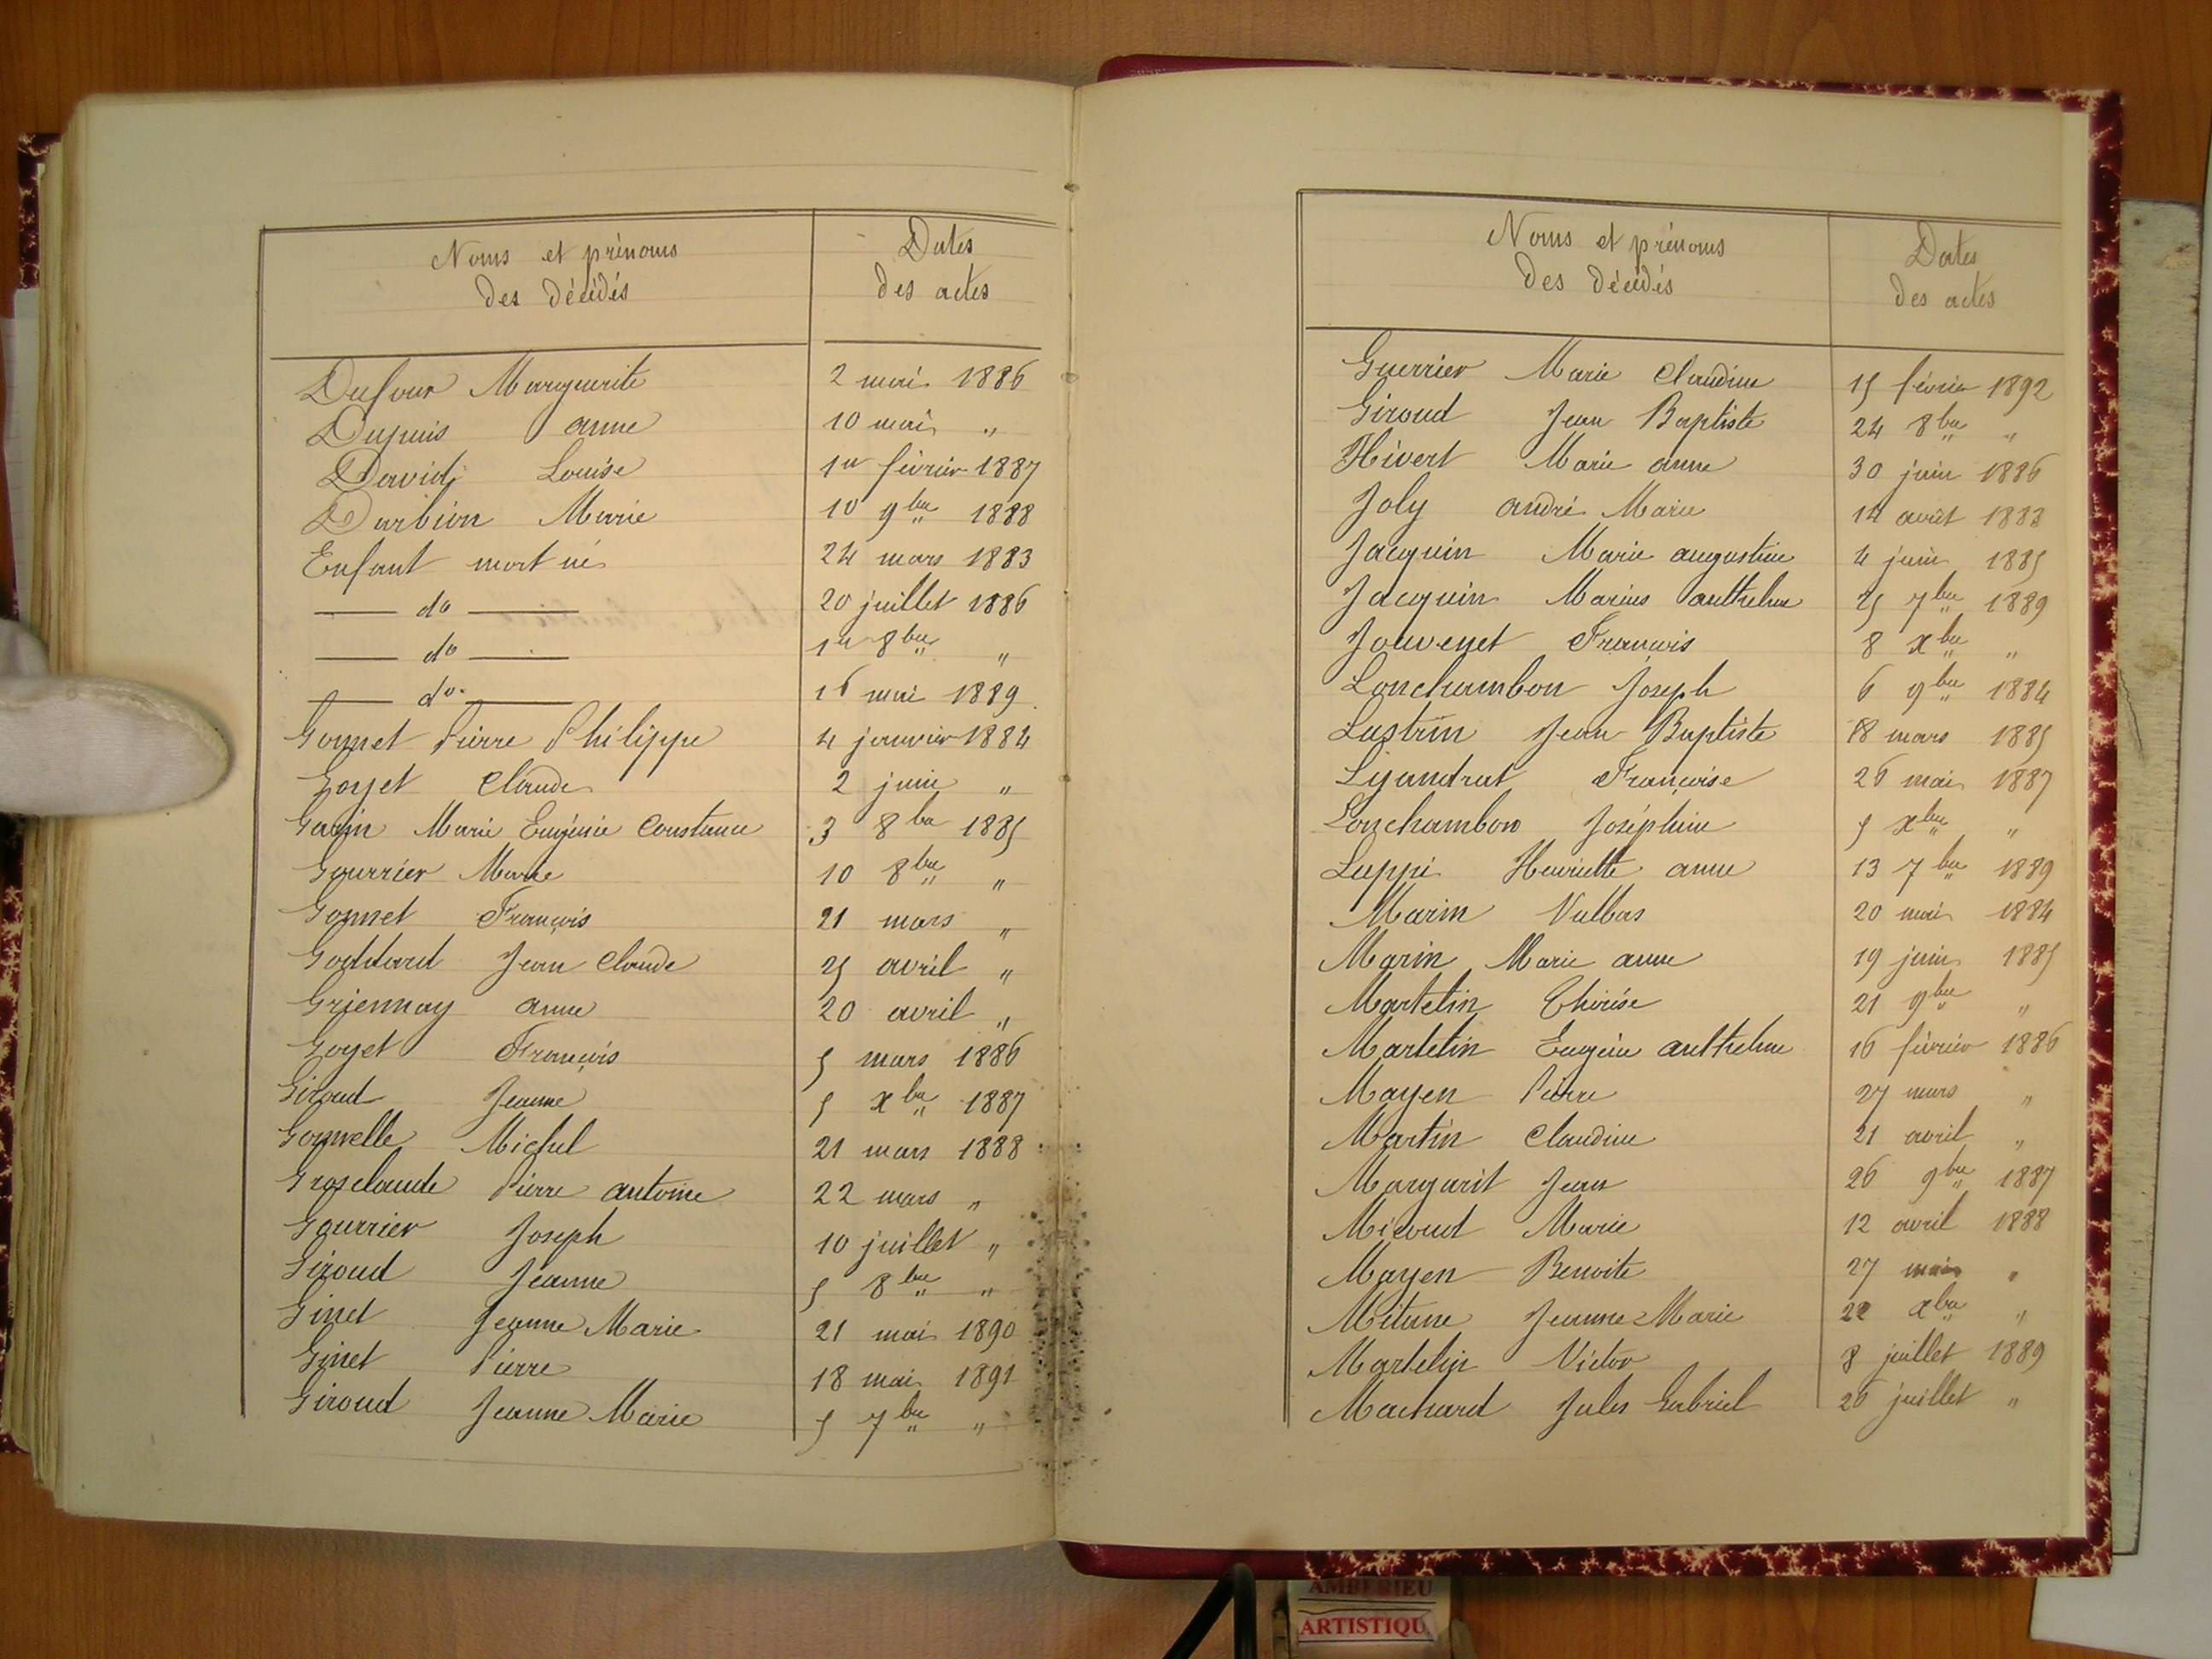 Noms et prénoms
des décédés
Dates
des actes
Dufour Marguerite 2 mai 1886
Dupuis anne 10 mai "
David Louise 1er février 1887
Darbion Marie 10 9bre 1888
Enfant mort né 24 mars 1883
do 20 juillet 1886
do 1er 8bre "
do 16 mai 1889
Gonnet Pierre Philippe 4 janvier 1884
Goyet Claude 2 juin "
Garin Marie Eugénie Constance 3 8bre 1885
Gourrier Marie 10 8bre "
Gonnet François 21 mars "
Goddard Jean Claude 25 avril "
Griennay anne 20 avril "
Goyet François 5 mars 1886
Giroud Jeanne 5 xbre 1887
Michel 21 mars 1888
Grosclaude Pierre antoine 22 mars "
Gourrier Joseph 10 juillet "
Giroud Jeanne 5 8bre "
Ginet Jeanne Marie 21 mai 1890
Ginet Pierre 18 mai 1891
Giroud Jeanne Marie 5 7bre "
Noms et prénoms
des décédés
Dates
des actes
Guerrier Marie Claudine 15 février 1892
Giroud Jean Baptiste 24 8bre "
Hivert Marie anne 30 juin 1886
Joly andré Marie 14 août 1883
Jacquin Marie augustine 4 juin 1885
Jacquin Marius anthelme 25 7bre 1889
Jouvenet François 8 xbre "
Lonchambon Joseph 6 9bre 1884
Lustrin Jean Baptiste 18 mars 1885
Lyandrat Françoise 26 mai 1887
Lonchambon Joséphine 5 xbre "
Luppi Henriette anne 13 7bre 1889
Marin Vulbas 20 mai 1884
Marin Marie anne 19 juin 1885
Martelin Thérèse 21 9bre "
Martelin Eugène anthelme 16 février 1886
Mayen Pierre 27 mars "
Martin Claudine 21 avril "
Margarit Jean 26 9bre 1887
Micoud Marie 12 avril 1888
Mayen Benoite 27 mai "
Mitane Jeanne Marie 22 xbre "
Martelin Victor 8 juillet 1889
Machard Jules Gabriel 26 juillet "
AMBERIEU
ARTISTIQU